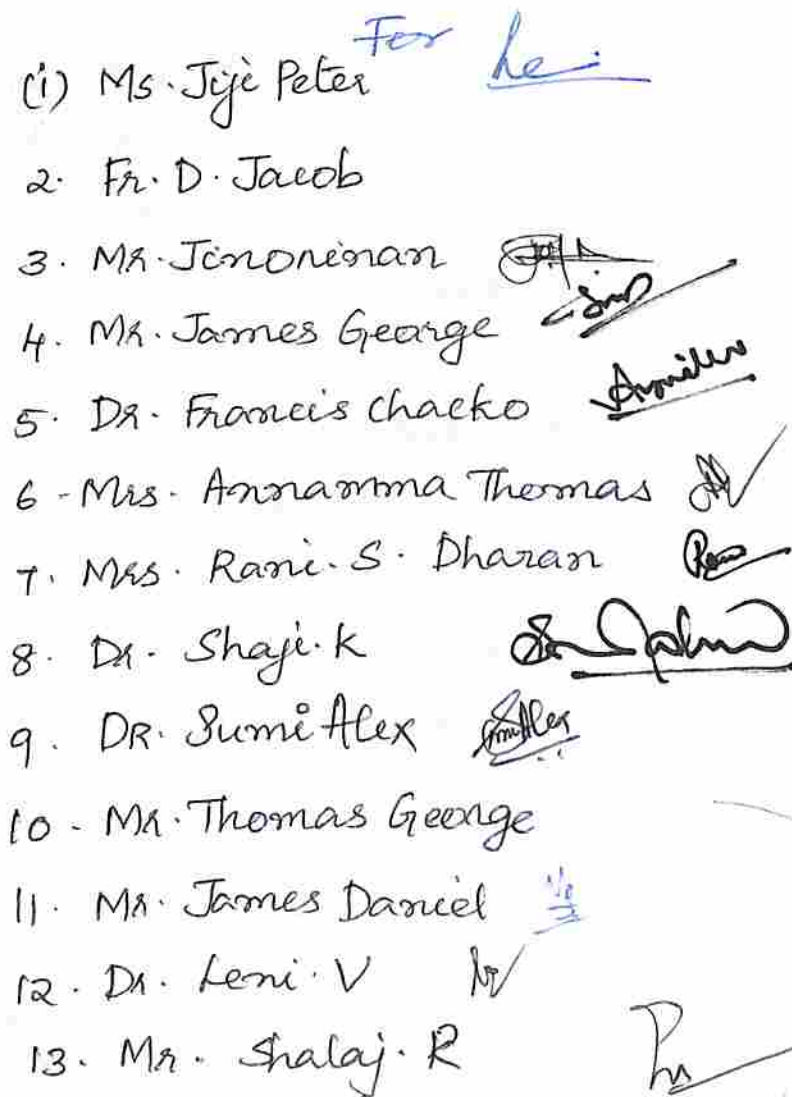 For
(1) Ms. Jiji Peter
2. Fr. D. Jacob
3. Mr. Jinoninan
4. Mr. James George
5. Dr. Francis Chacko
6 - Mrs. Annamma Thomas
7. Mrs. Rani. S. Dharan
8. Dr. Shaji. K
9. DR. Sumi Alex
10 - Mr. Thomas George
11. Mr. James Daniel
12. Dr. Leni. V
13. Mr. Shalaj. R